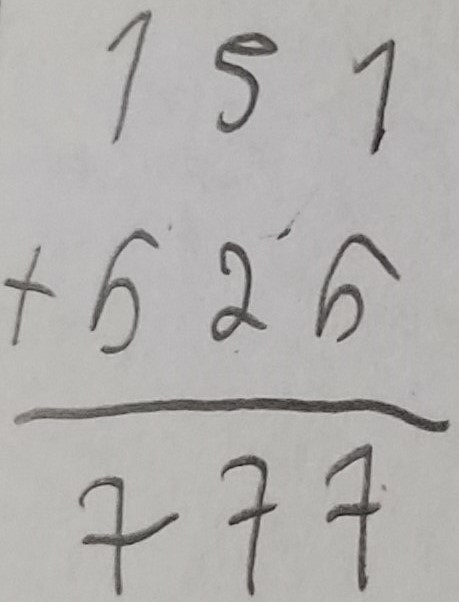 151
+ 626
777